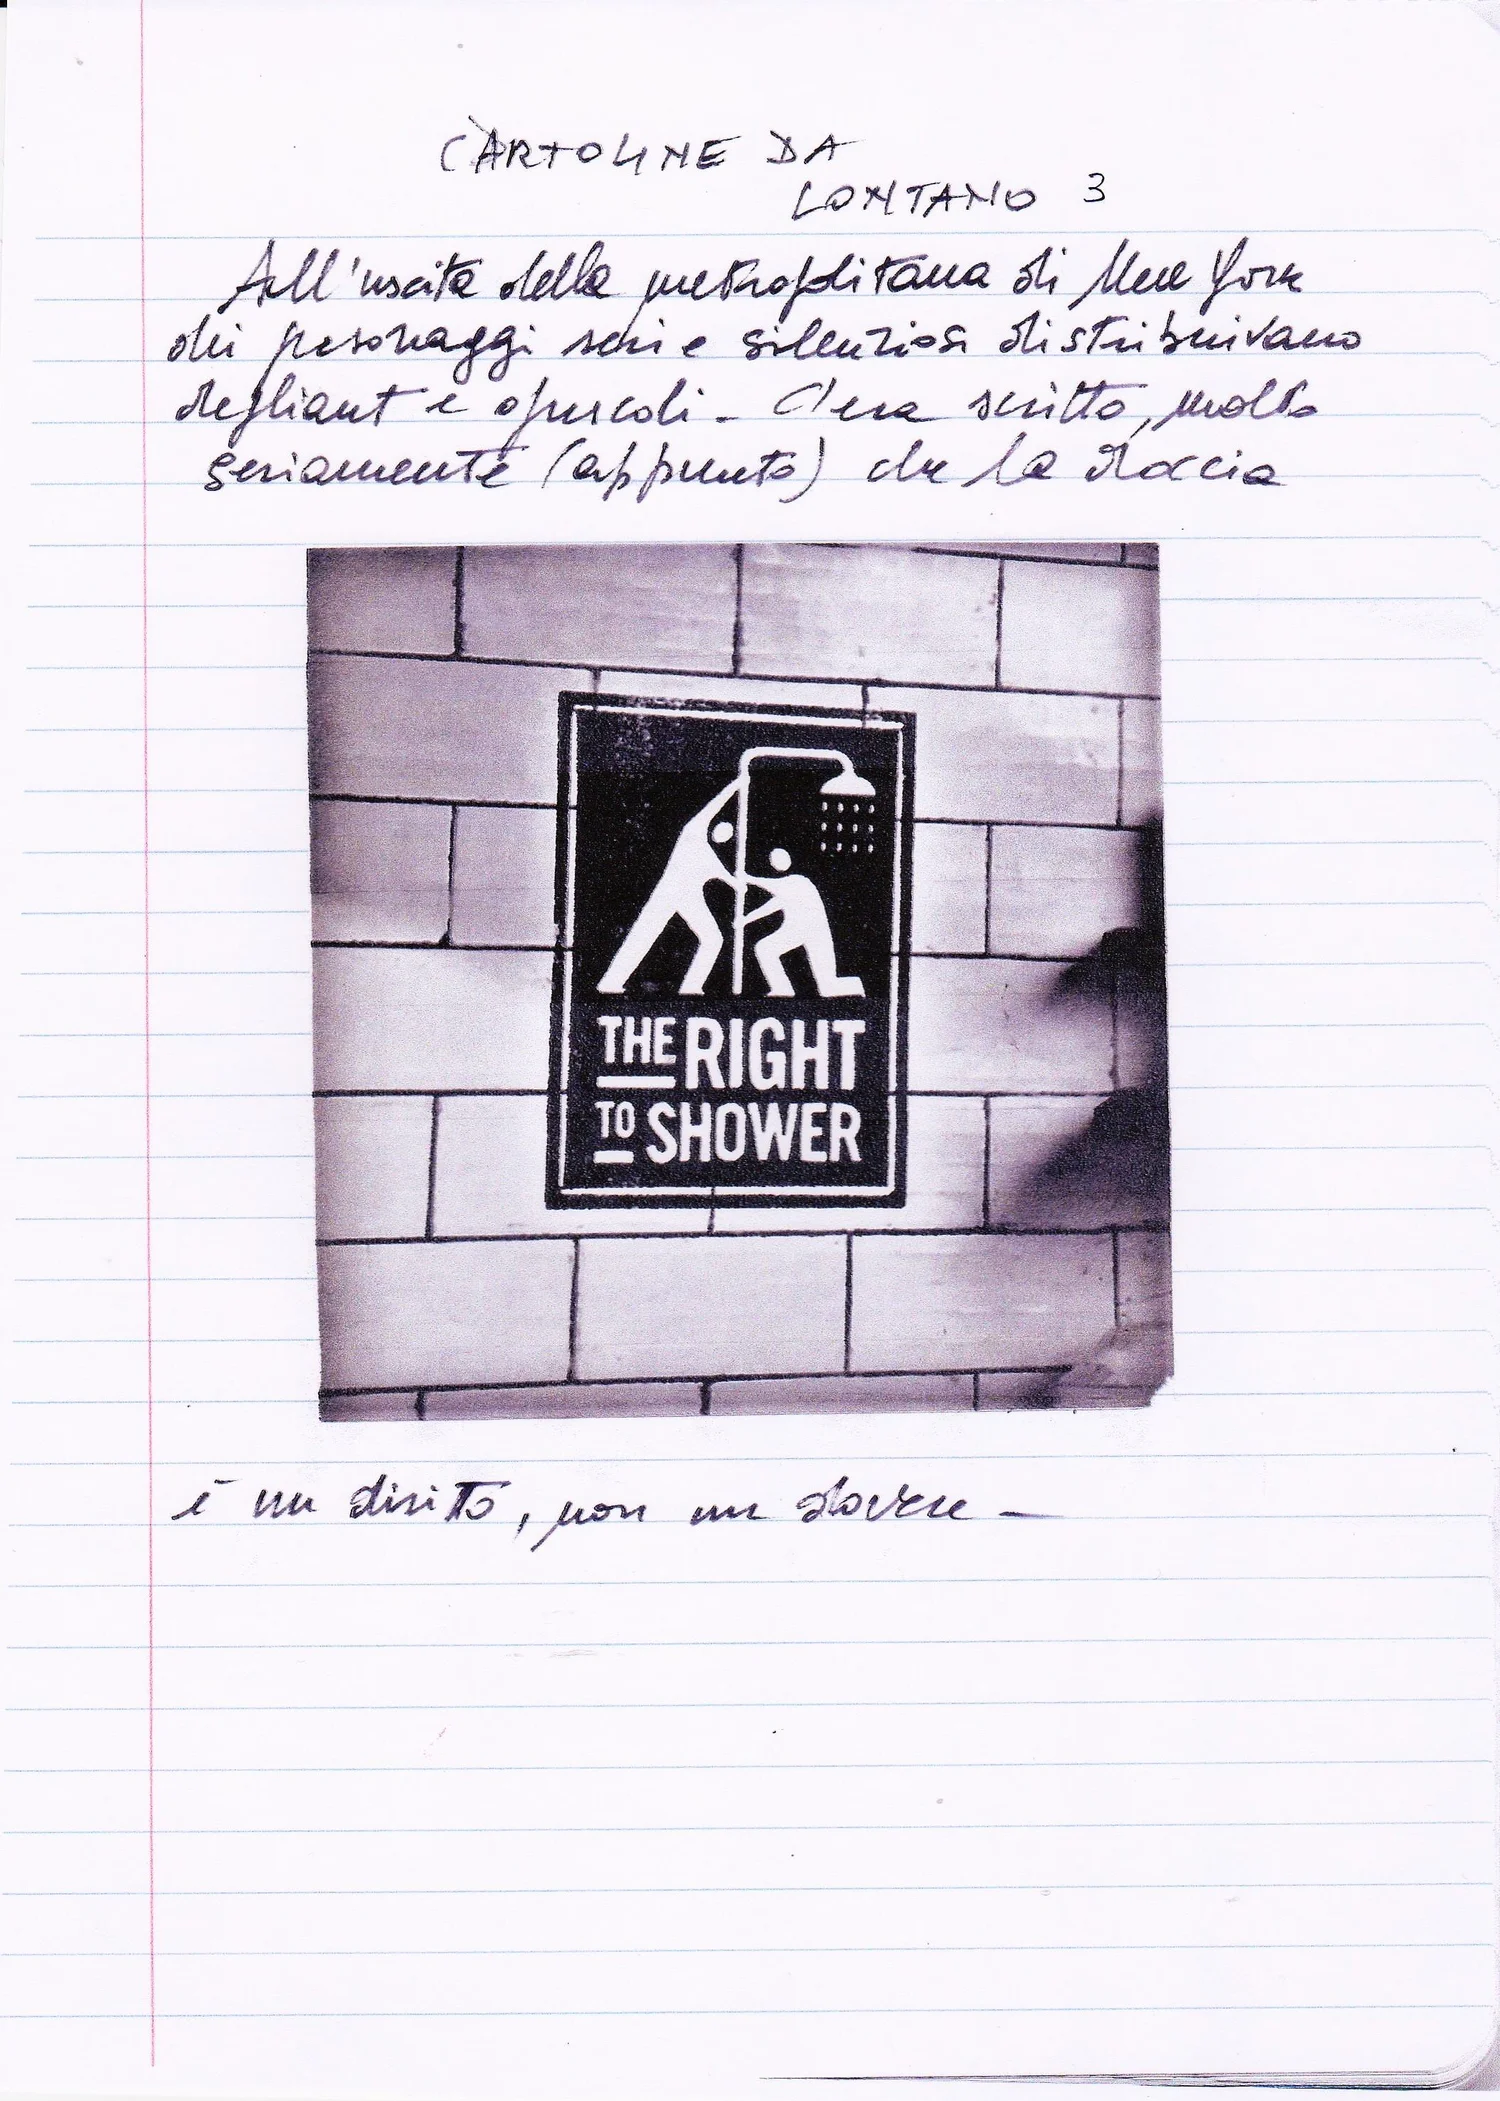 CARTOLINE DA
LONTANO 3
All'uscita della metropolitana di New York
dei personaggi seri e silenziosi distribuivano
depliant e opuscoli - C'era scritto, molto
seriamente (appunto) che la doccia
THE RIGHT
TO SHOWER
è un diritto, non un dovere -